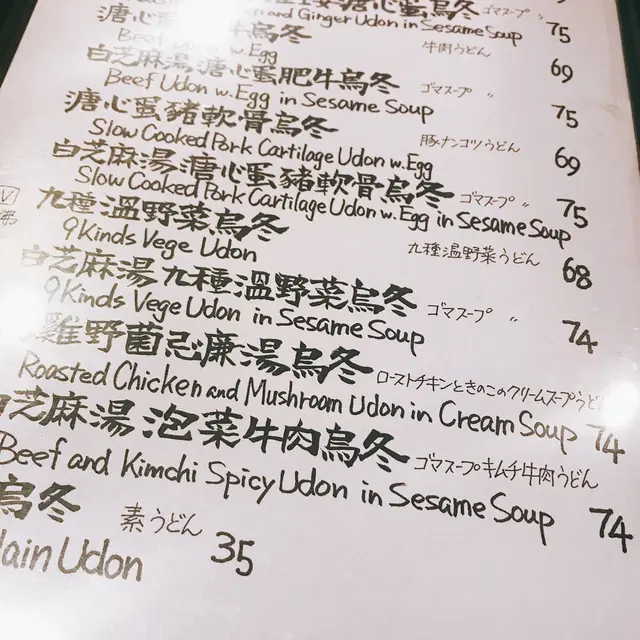 溏心蛋烏冬 ゴマスープ 〃
and Ginger Udon in Sesame Soup 75
溏心 牛烏冬 牛肉うどん
Beef w.Egg 69
白芝麻湯溏心蛋肥牛烏冬 ゴマスープ 〃
Beef Udon w.Egg in Sesame Soup 75
溏心蛋豬軟骨烏冬 豚ナンコツうどん
Slow Cooked Pork Cartilage Udon w.Egg 69
白芝麻湯溏心蛋豬軟骨烏冬 ゴマスープ 〃
Slow Cooked Pork Cartilage Udon w.Egg in Sesame Soup 75
V 九種溫野菜烏冬 九種温野菜うどん
9 Kinds Vege Udon 68
白芝麻湯九種溫野菜烏冬 ゴマスープ 〃
9 Kinds Vege Udon in Sesame Soup 74
雞野菌忌廉湯烏冬 ローストチキンときのこのクリームスープうど
Roasted Chicken and Mushroom Udon in Cream Soup 74
白芝麻湯泡菜牛肉烏冬 ゴマスープキムチ牛肉うどん
Beef and Kimchi Spicy Udon in Sesame Soup 74
烏冬 素うどん 35
lain Udon